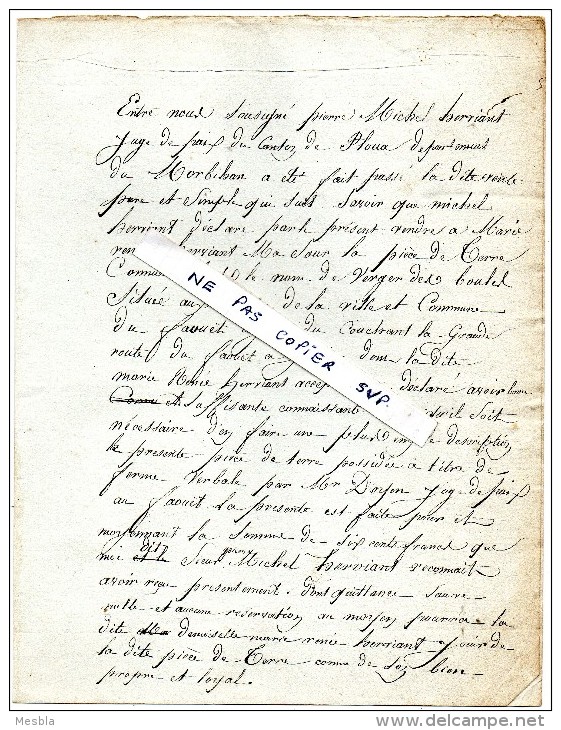 Entre nous Sousigné pierre Michel herviant
Juge de paix du Canton de Ploua departement
du Morbehan a eté fait passé la dite
pure et Simple qui suit Savoir que michel
hervient déclare par le présent vendre a Marie
herviant Ma Sœur la pièce de Terre
le nom de Verger des boulet
Située de la ville et Commune
du faouët du Couchant la Grande
route du faouet dont la dite
marie Renée herviant déclaré avoir bonne
et Suffisante connaissance qu'il soit
nécessaire d'en faire une plus description
présente pièce de terre possédée a titre de
ferme Verbale par Mr Doyen Juge de paix
au faouët la presente est faite pour et
moyennant la Somme de Six cents francs que
moi dit Sieur Michel herviant reconnait
avoir reçu présentement. Dont quittance Sauve
nulle et aucune reservation au moyen la
dite demoiselle marie renée herviant Jouir de
la dite pièce de Terre comme de Son bien
propre et loyal.
NE PAS COPIER SVP.
Mesbla
www.delcampe.net